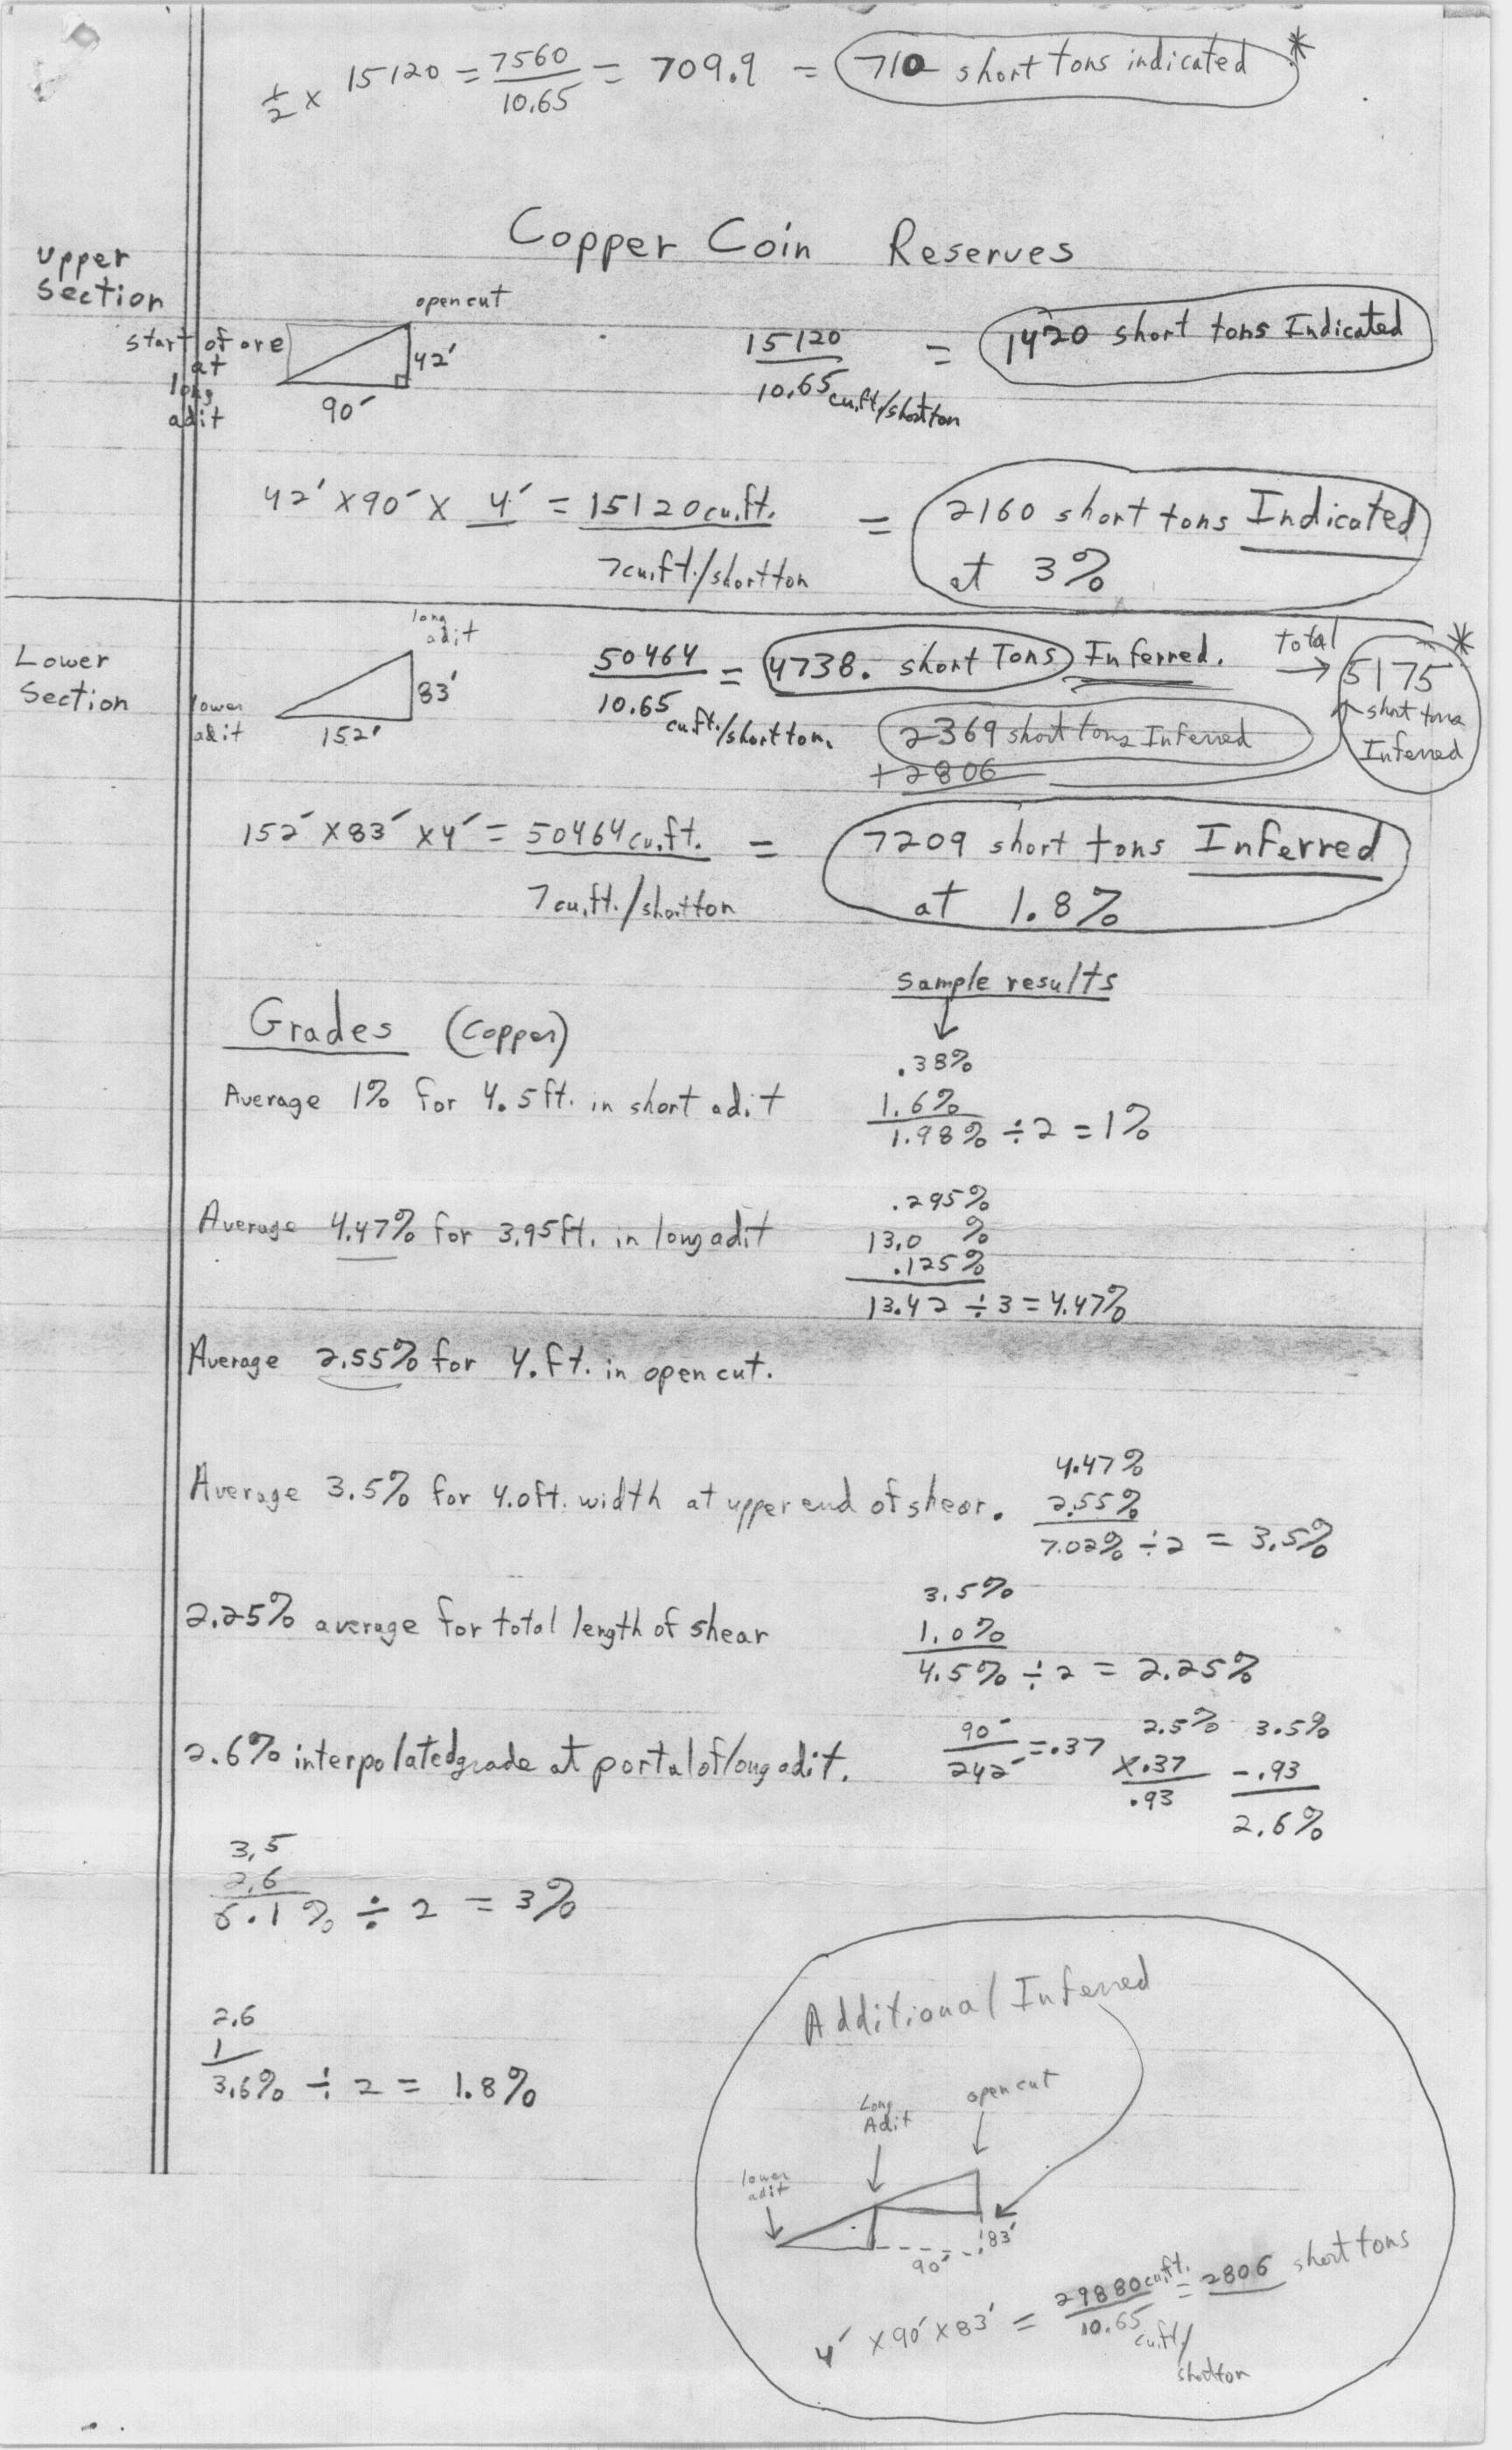 1/2 x 15120 = 7560/10.65 = 709.9 = 710 short tons indicated *
Copper Coin Reserves
Upper
Section
open cut
start of ore
at
long
adit
42'
90'
15120/10.65 cu.ft./short ton = 1420 short tons Indicated
42' x 90' x 4' = 15120 cu.ft. = 2160 short tons Indicated
7 cu.ft./short ton
at 3%
Lower
Section
long
adit
lower
adit
83'
152'
50464/10.65 cu.ft./short ton. = 4738. short Tons Inferred. total → 5175 *
short tons
Inferred
2369 short tons Inferred
+2806
152' x 83' x 4' = 50464 cu.ft. = 7209 short tons Inferred
7 cu.ft./short ton
at 1.8%
Sample results
Grades (Copper)
.38%
Average 1% for 4.5 ft. in short adit 1.6%
1.98% ÷ 2 = 1%
.295%
Average 4.47% for 3.95 ft. in long adit 13.0 %
.125%
13.42 ÷ 3 = 4.47%
Average 2.55% for 4. ft. in open cut.
4.47%
Average 3.5% for 4.0 ft. width at upper end of shear. 2.55%
7.02% ÷ 2 = 3.5%
3.5%
2.25% average for total length of shear 1.0%
4.5% ÷ 2 = 2.25%
2.6% interpolated grade at portal of long adit. 90'/242' = .37 2.5% 3.5%
x.37 -.93
.93 2.6%
3.5
2.6
6.1% ÷ 2 = 3%
2.6
1
3.6% ÷ 2 = 1.8%
Additional Inferred
Long
Adit
open cut
lower
adit
83'
90'
4' x 90' x 83' = 29880 cu.ft./10.65 cu.ft/short ton = 2806 short tons